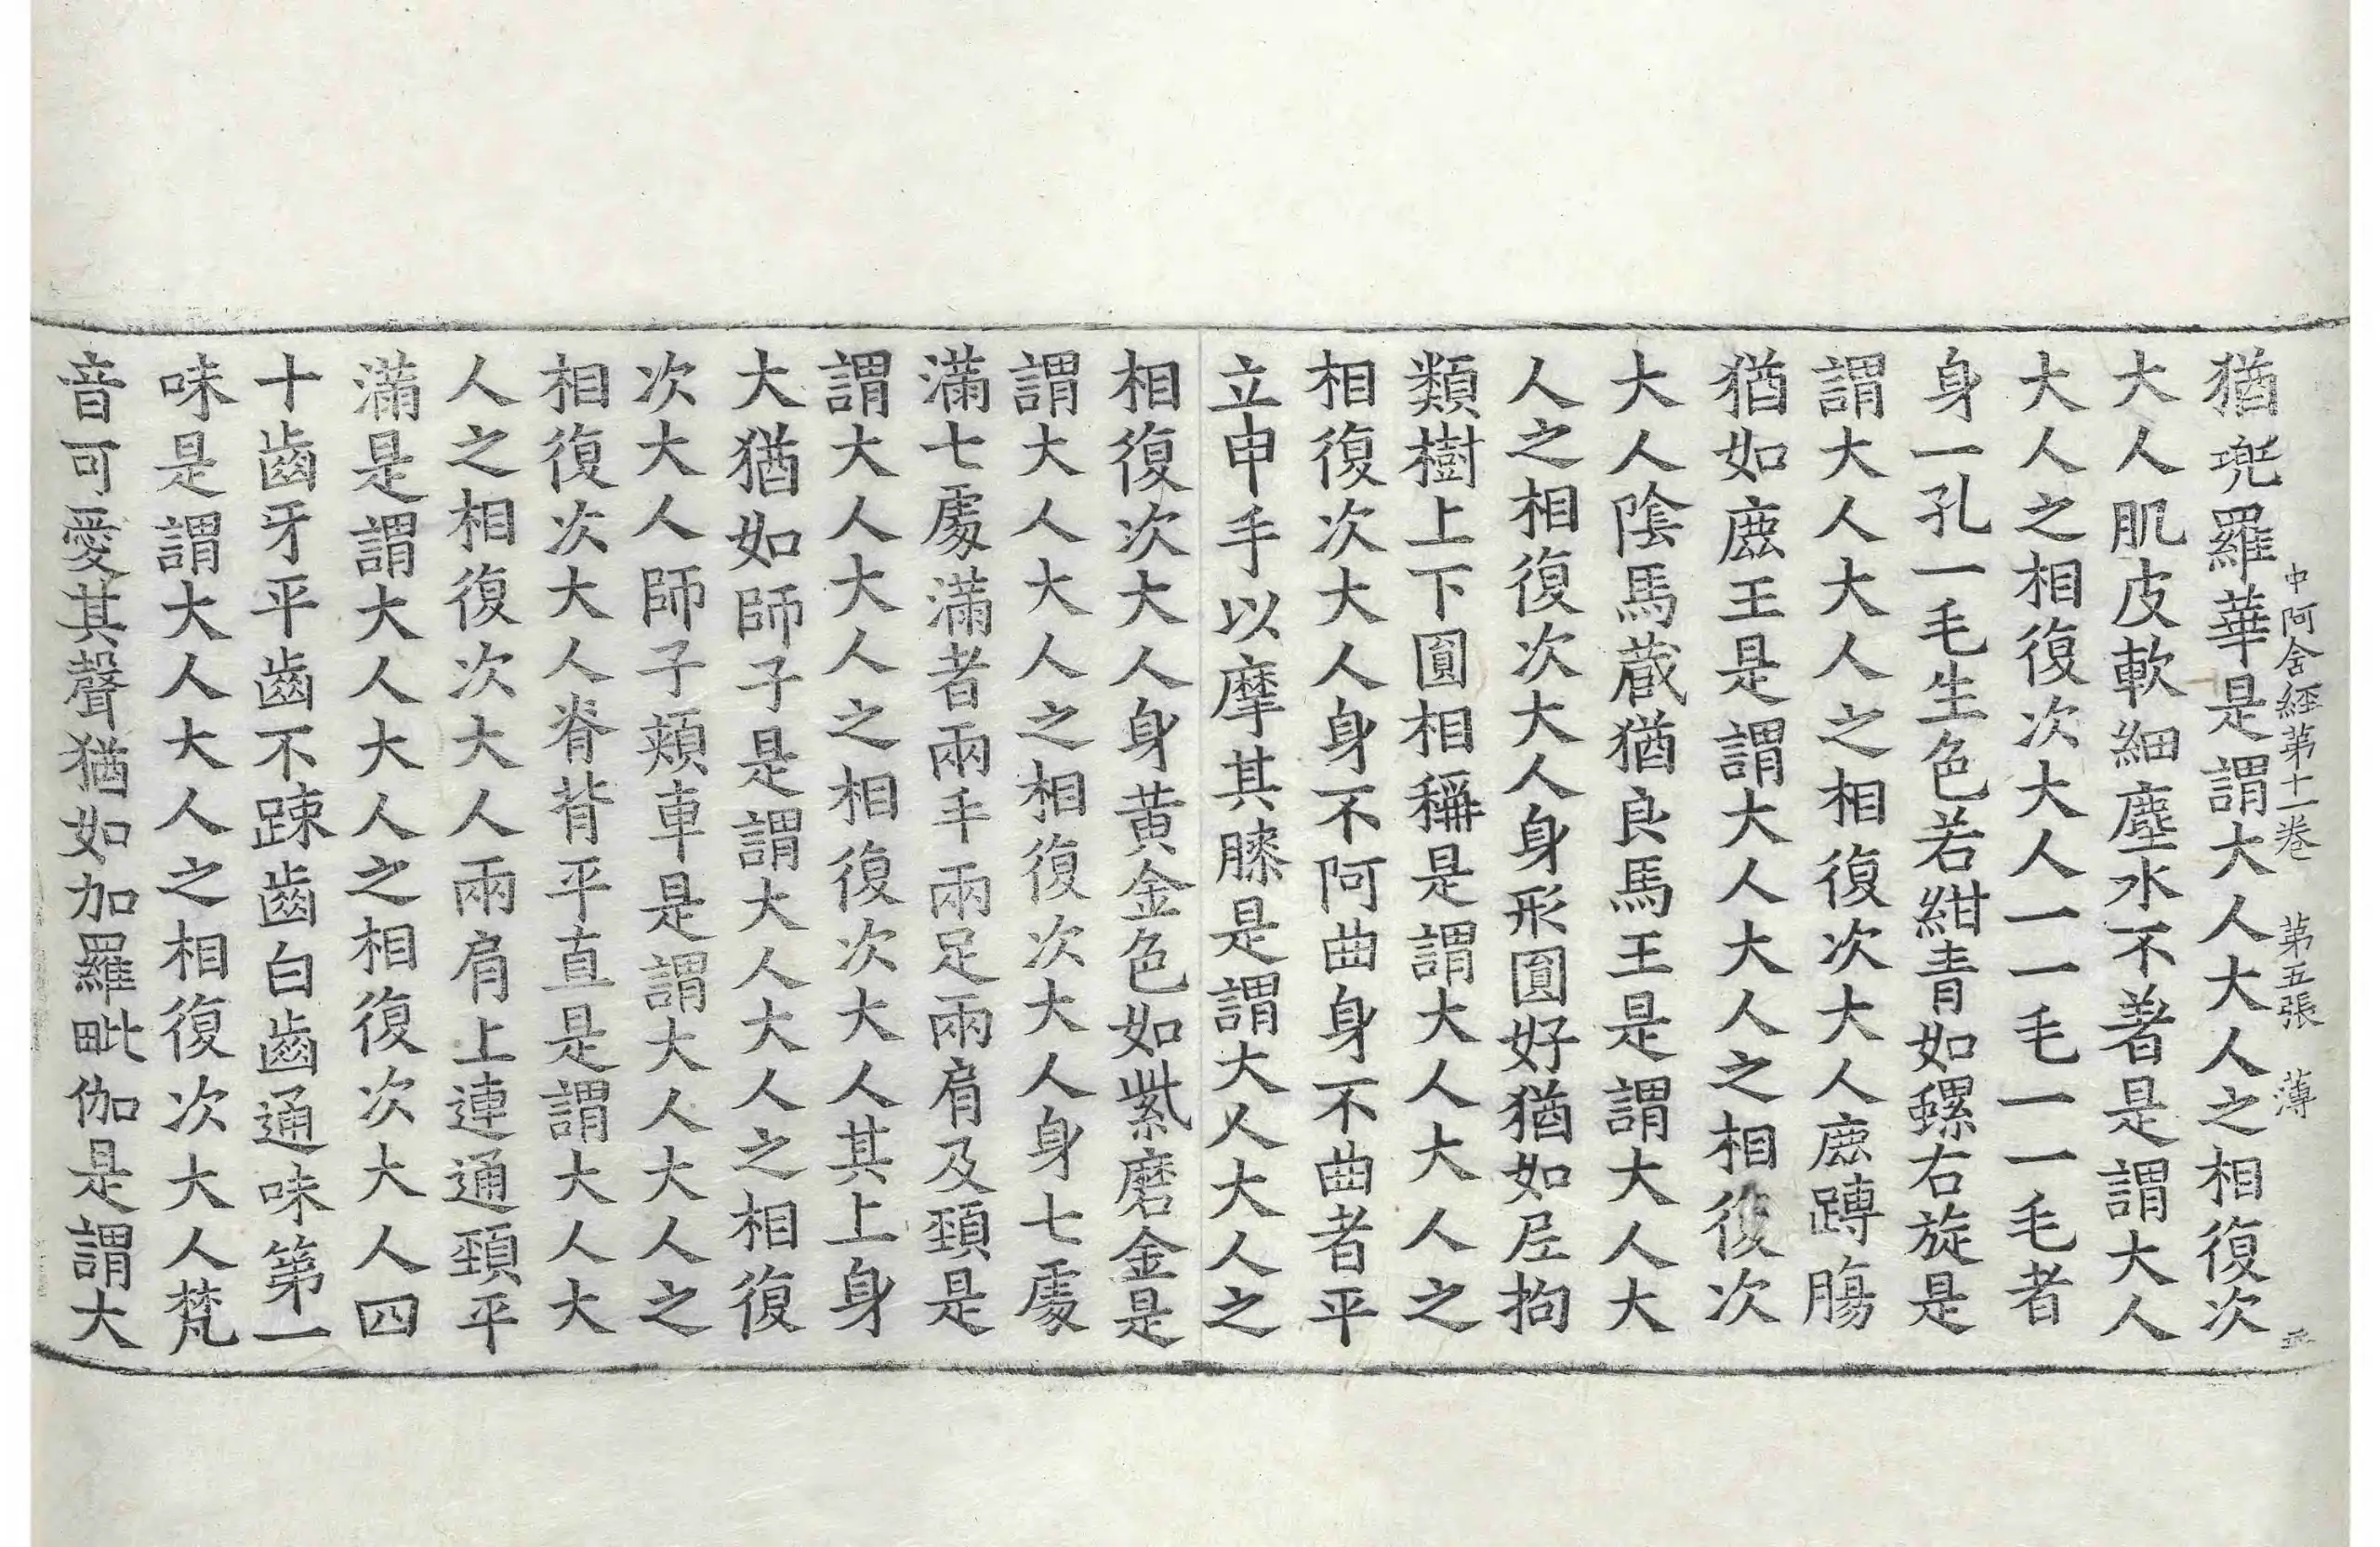 中阿含經第十一卷 第五張 薄
猶兜羅華是謂大人大人之相復次
大人肌皮軟細塵水不著是謂大人
大人之相復次大人一一毛一一毛者
身一孔一毛生色若紺青如螺右旋是
謂大人大人之相復次大人鹿䏝腸
猶如鹿王是謂大人大人之相復次
大人陰馬蔵猶良馬王是謂大人大
人之相復次大人身形圓好猶如𡰱拘
類樹上下圓相稱是謂大人大人之
相復次大人身不阿曲身不曲者平
立申手以摩其膝是謂大人大人之
相復次大人身黄金色如紫磨金是
謂大人大人之相復次大人身七處
滿七處滿者兩手兩足兩肩及頸是
謂大人大人之相復次大人其上身
大猶如師子是謂大人大人之相復
次大人師子頰車是謂大人大人之
相復次大人脊背平直是謂大人大
人之相復次大人兩肩上連通頸平
滿是謂大人大人之相復次大人四
十齒牙平齒不踈齒白齒通味第一
味是謂大人大人之相復次大人梵
音可愛其聲猶如加羅毗伽是謂大